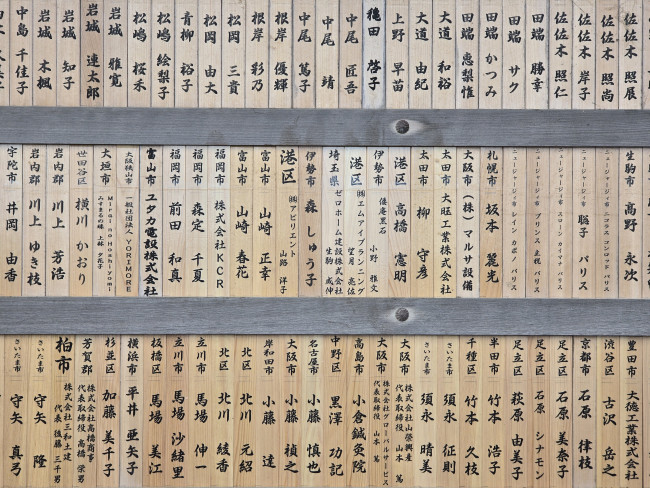 佐佐木 照展
佐佐木 照尚
佐佐木 岸子
佐佐木 照仁
田端 勝幸
田端 サク
田端 かつみ
田端 恵梨惟
大道 和裕
大道 由紀
上野 早苗
穐田 啓子
中尾 匠吾
中尾 靖
中尾 篤子
根岸 優輝
根岸 彩乃
松岡 三貴
松岡 由大
青柳 裕子
松嶋 絵梨子
松嶋 桜禾
岩城 雅寛
岩城 連太郎
岩城 知子
岩城 楓
中島 千佳子
生駒市 高野 永次
ニュージャージィ市 ニコラス コンロッド パリス
ニュージャージィ市 聡子 パリス
ニュージャージィ市 スコーン カイマナ パリス
ニュージャージィ市 プリンス 正悦 パリス
ニュージャージィ市 レイン カポノ パリス
札幌市 坂本 麗光
大阪市 (株)マルサ設備
太田市 大旺工業株式会社
太田市 柳 守彦
港区 高橋 憲明
伊勢市 倭庵黒石 小野 雅文
港区 ㈱エムアイプランニング 望月 亮佐
埼玉県 ゼロホーム建設株式会社 生駒 成伸
伊勢市 森 しゅう子
港区 ㈱アビリエント 山路 洋子
富山市 山崎 正幸
富山市 山崎 春花
福岡市 株式会社KCR
福岡市 森定 千夏
福岡市 前田 和真
富山市 ユタカ電設株式会社
大阪狭山市 一般社団法人 YORIMORE
大垣市 Mirai no Hoshiyomi みすまるの珠 小林 夕兎子
世田谷区 横川 かおり
岩内郡 川上 芳浩
岩内郡 川上 ゆき枝
宇陀市 井岡 由香
豊田市 大徳工業株式会社
渋谷区 古沢 岳之
京都市 石原 律枝
足立区 石原 美奈子
足立区 石原 シナモン
足立区 萩原 由美子
半田市 竹本 浩子
千種区 竹本 久枝
さいたま市 須永 征則
さいたま市 須永 晴美
大阪市 株式会社山榮興産 代表取締役 山本 篤
大阪市 株式会社グローバルサービス 代表取締役 山本 篤
高島市 小倉鍼灸院
中野区 黒澤 功記
名古屋市 小藤 慎也
大阪市 小藤 禎之
岸和田市 小藤 達
北区 北川 元紹
北区 北川 綾香
立川市 馬場 伸一
立川市 馬場 沙緒里
板橋区 馬場 美江
横浜市 平井 亜矢子
杉並区 加藤 美千子
芳賀郡 株式会社高橋商事 代表取締役 高橋 榮男
柏市 株式会社三和土建 代表 後藤 三千男
さいたま市 守矢 隆
さいたま市 守矢 真弓